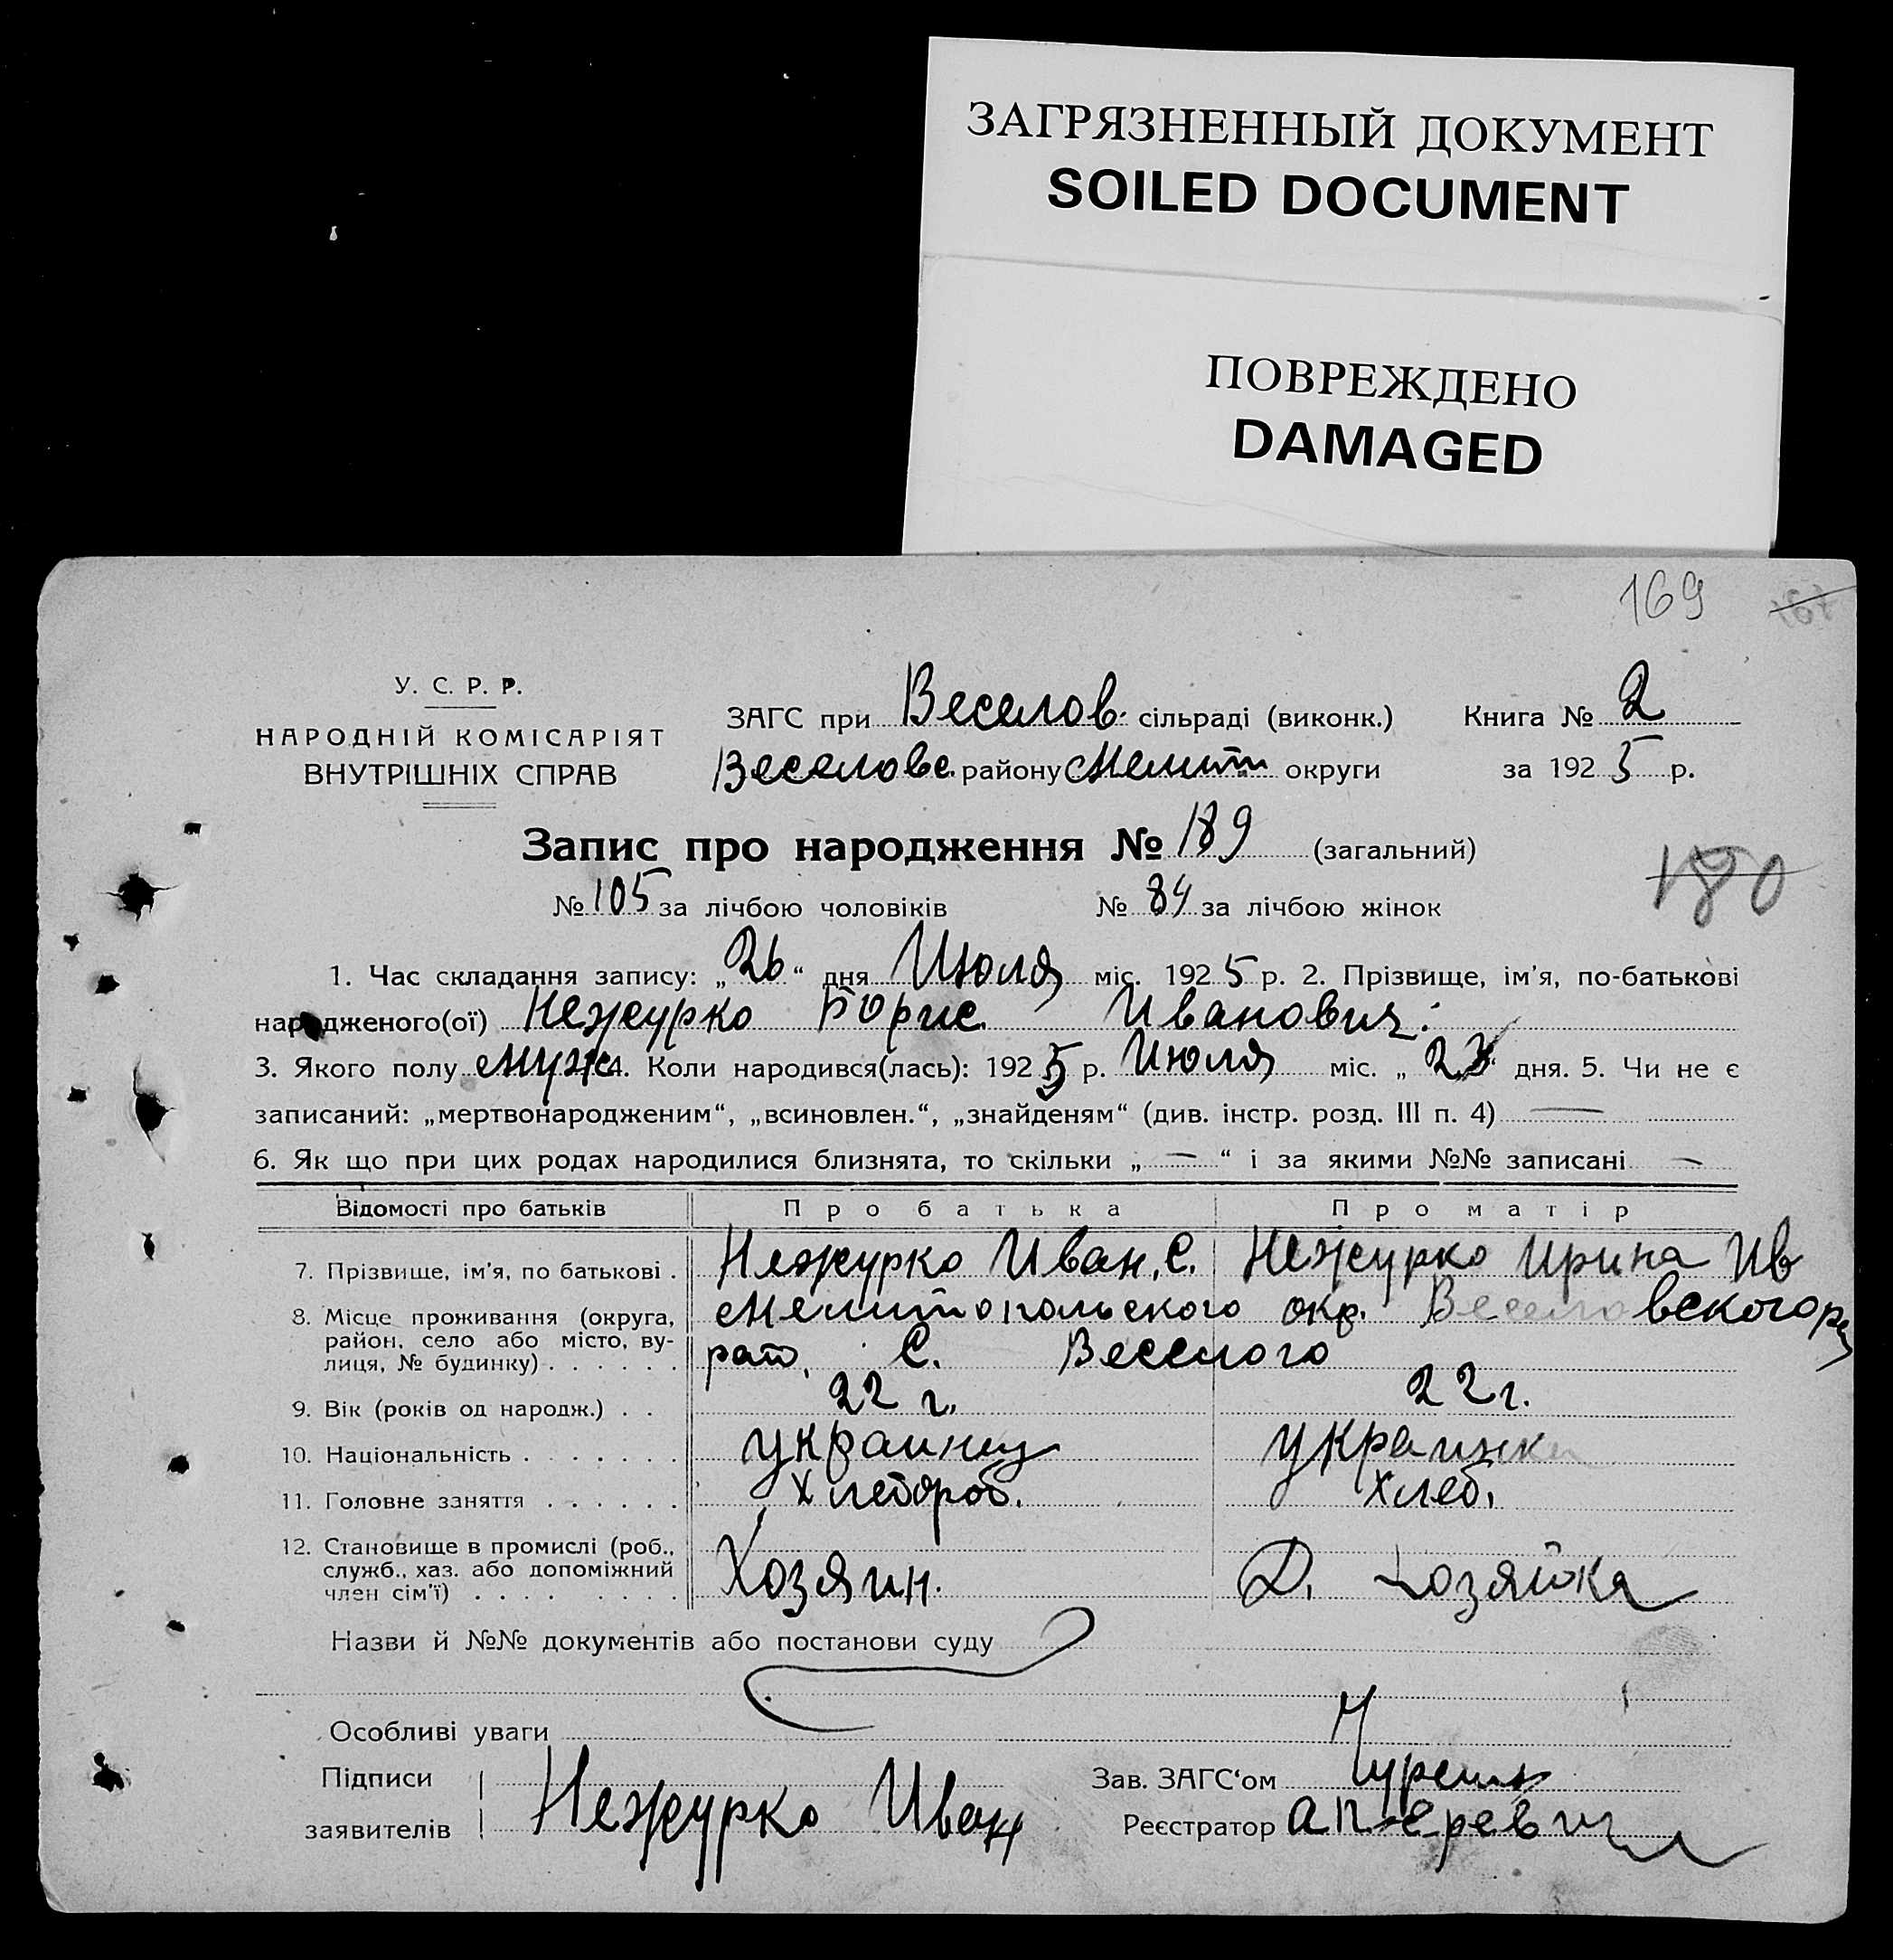 ЗАГРЯЗНЕННЫЙ ДОКУМЕНТ
SOILED DOCUMENT
ПОВРЕЖДЕНО
DAMAGED
169
У. С. Р. Р.
НАРОДНІЙ КОМІСАРІЯТ
ВНУТРІШНІХ СПРАВ
ЗАГС при Веселов. сільраді (виконк.) Книга № 2
Веселовс. району Мелит округи за 1925 р.
Запис про народження № 189 (загальний)
180
№ 105 за лічбою чоловіків № 84 за лічбою жінок
1. Час складання запису: „26“ дня Июля міс. 1925 р. 2. Прізвище, ім’я, по-батькові
народженого(ої) Нежурко Борис Иванович.
3. Якого полу муж 4. Коли народився(лась): 1925 р. Июля міс. „23“ дня. 5. Чи не є
записаний: „мертвонародженим“, „всиновлен.“, „знайденям“ (див. інстр. розд. III п. 4) —
6. Як що при цих родах народилися близнята, то скільки „—“ і за якими №№ записані —
Відомості про батьків Про батька Про матір
7. Прізвище, ім’я, по батькові . Нежурко Иван. С. Нежурко Ирина Ив
8. Місце проживання (округа, Мелитопольского окр. Веселовского ра
район, село або місто, ву-
лиця, № будинку) . . . . . . С. Веселого
9. Вік (років од народж.) . . 22 г. 22 г.
10. Національність . . . . . . . украинец украинка
11. Головне заняття . . . . . . Хлебороб. Хлеб.
12. Становище в промислі (роб.,
служб., хаз. або допоміжний Хозяин. Д. Хозяйка
член сім’ї) . . . . . . . .
Назви й №№ документів або постанови суду
Особливі уваги
Підписи Зав. ЗАГС‘ом
Нежурко Иван
заявителів Реєстратор